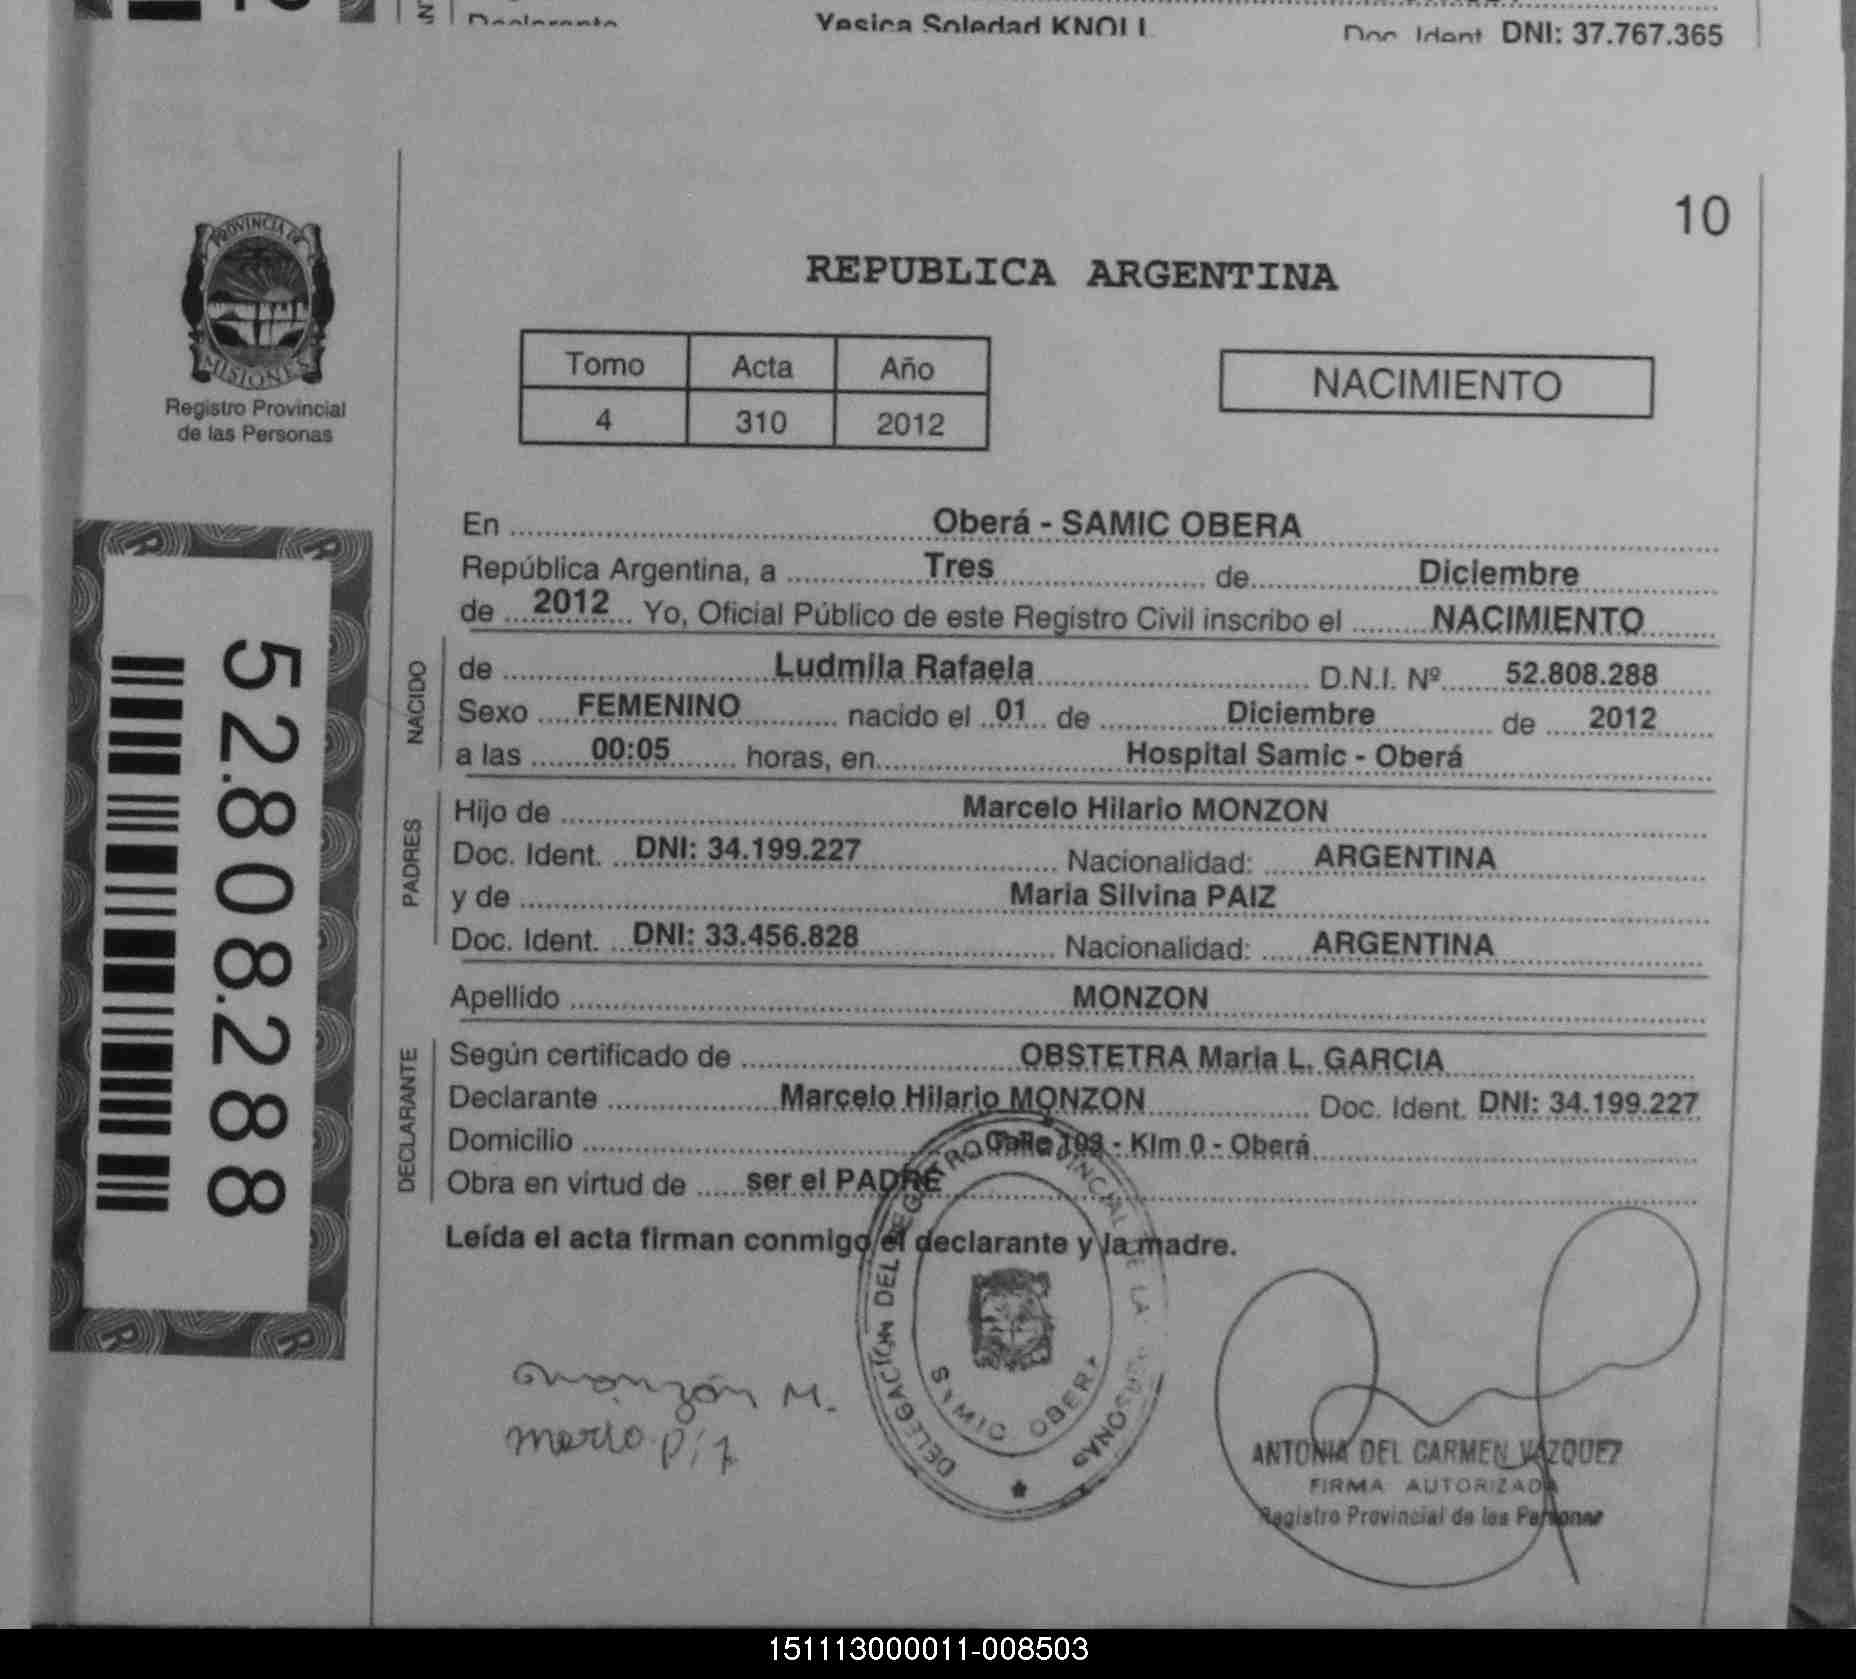 Declarante Yesica Soledad KNOLL Doc. Ident. DNI: 37.767.365
10
PROVINCIA DE
MISIONES
Registro Provincial
de las Personas
REPUBLICA ARGENTINA
Tomo Acta Año
4 310 2012
NACIMIENTO
En Oberá - SAMIC OBERA
República Argentina, a Tres de Diciembre
de 2012 Yo, Oficial Público de este Registro Civil inscribo el NACIMIENTO
NACIDO
de Ludmila Rafaela D.N.I. Nº 52.808.288
Sexo FEMENINO nacido el 01 de Diciembre de 2012
a las 00:05 horas, en Hospital Samic - Oberá
PADRES
Hijo de Marcelo Hilario MONZON
Doc. Ident. DNI: 34.199.227 Nacionalidad: ARGENTINA
y de Maria Silvina PAIZ
Doc. Ident. DNI: 33.456.828 Nacionalidad: ARGENTINA
Apellido MONZON
DECLARANTE
Según certificado de OBSTETRA Maria L. GARCIA
Declarante Marcelo Hilario MONZON Doc. Ident. DNI: 34.199.227
Domicilio Calle 103 - Klm 0 - Oberá
Obra en virtud de ser el PADRE
Leída el acta firman conmigo el declarante y la madre.
52.808.288
DELEGACION DEL REGISTRO PROVINCIAL DE LAS PERSONAS
SAMIC OBERA
monzón M.
ANTONIA DEL CARMEN VAZQUEZ
FIRMA AUTORIZADA
Registro Provincial de las Personas
151113000011-008503